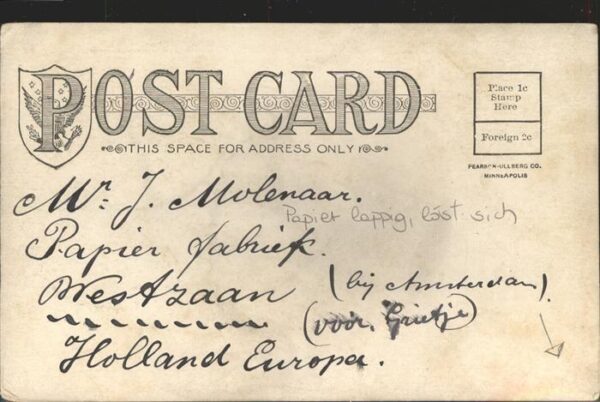 POST CARD
THIS SPACE FOR ADDRESS ONLY
Place 1c
Stamp
Here
Foreign 2c
PEARSON-ULLBERG CO.
MINNEAPOLIS
Mr. J. Molenaar.
Papier lappig, löst sich
Papier fabriek.
Westzaan (bij Amsterdam).
(voor Grietje)
Holland Europa.